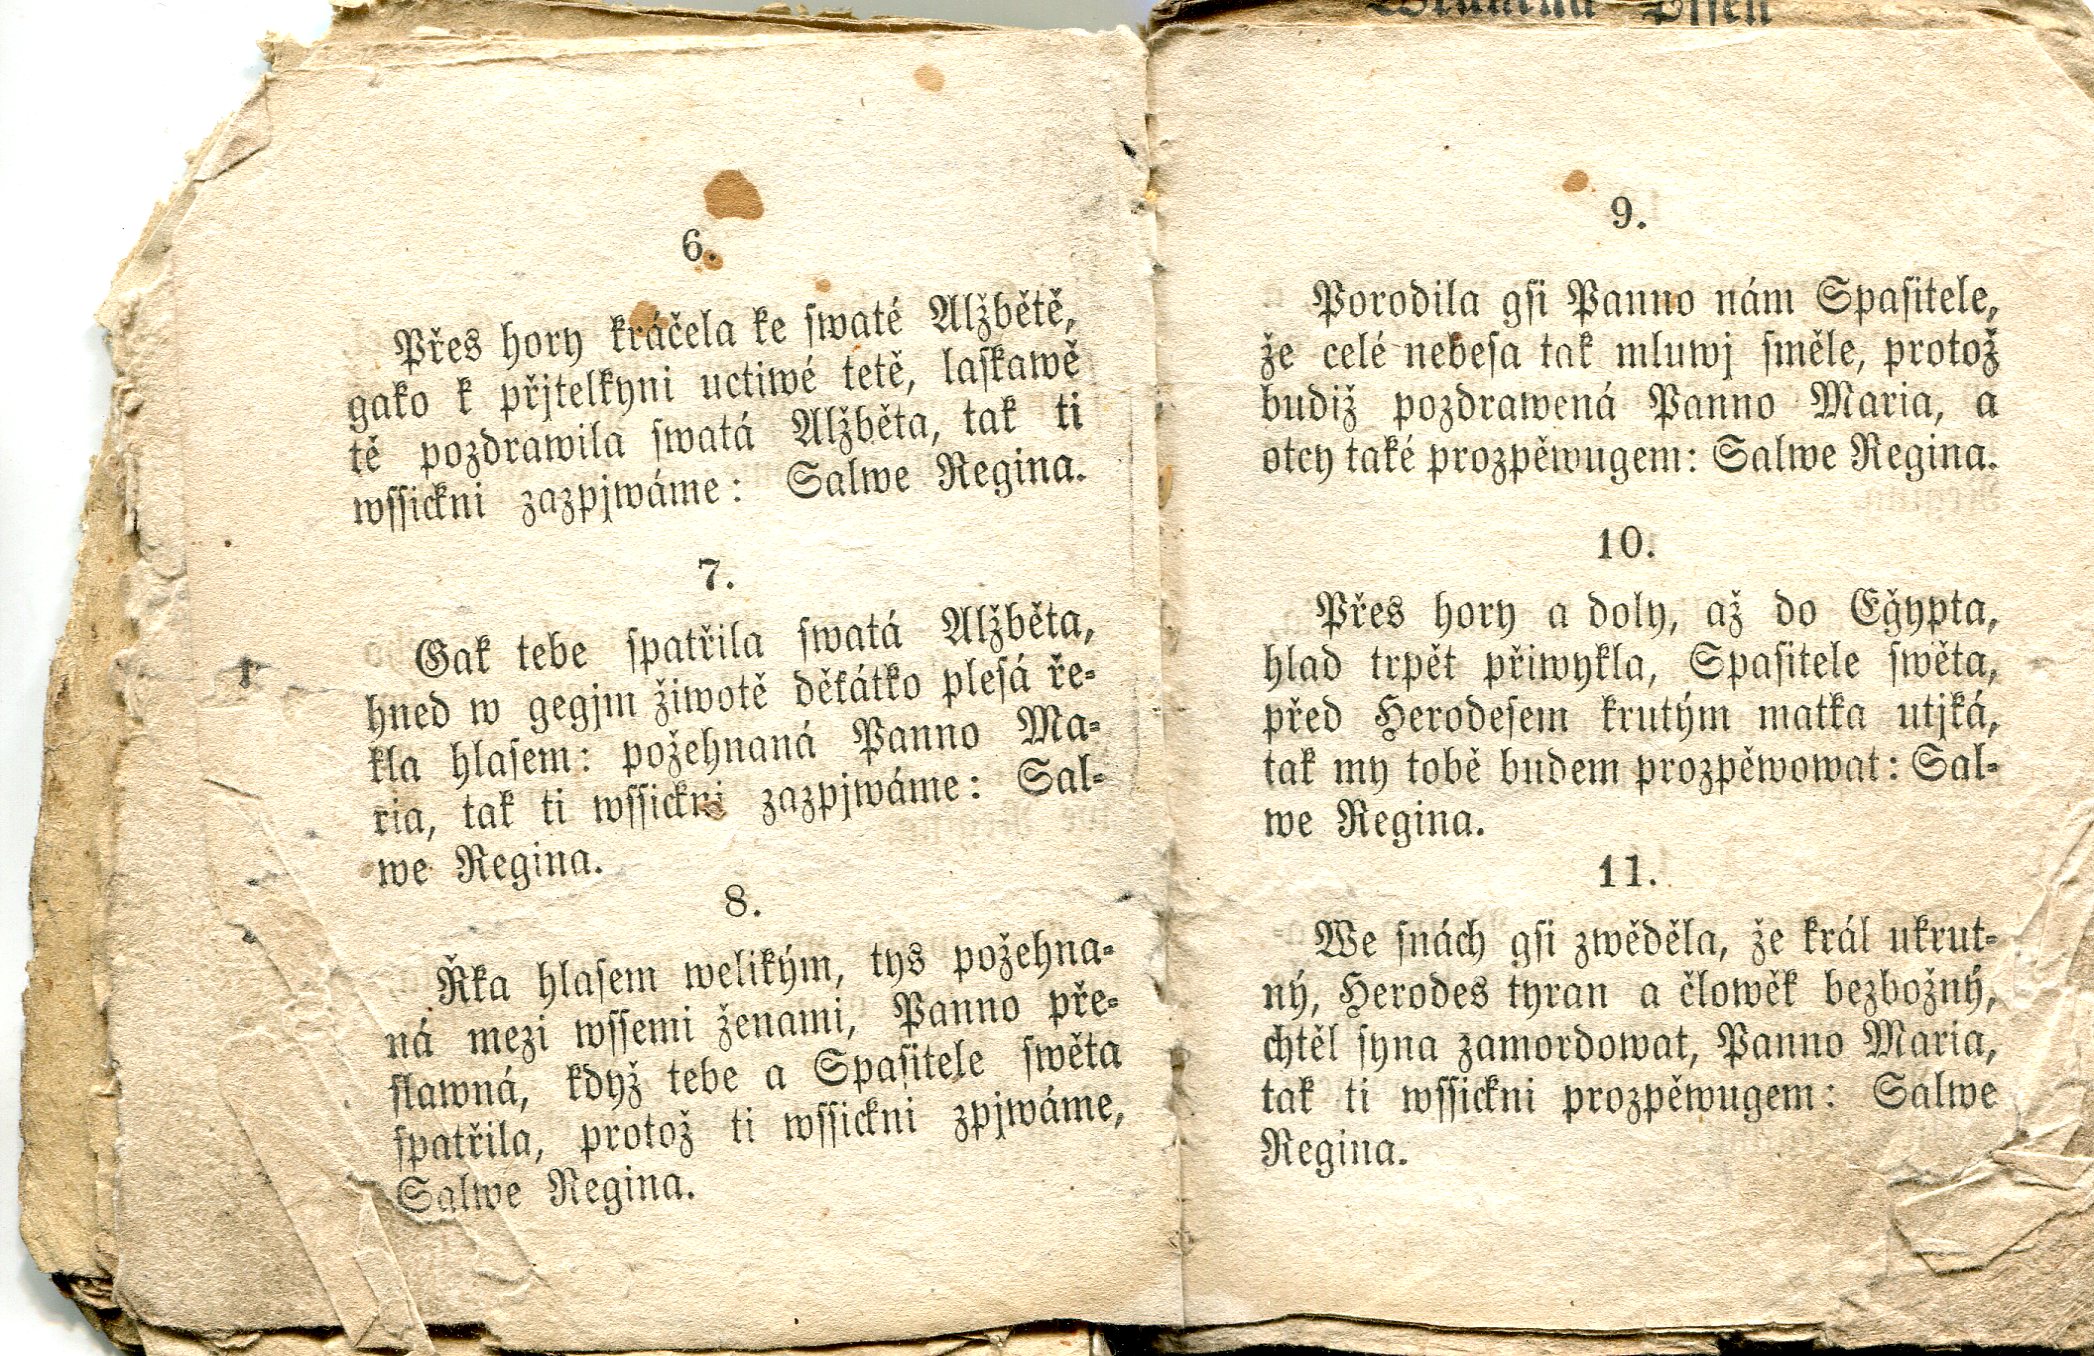 6.
Přes hory kráčela ke swaté Alžbětě,
gako k přjtelkyni uctiwé tetě, laskawě
tě pozdrawila swatá Alžběta, tak ti
wssickni zazpjwáme: Salwe Regina.
7.
Gak tebe spatřila swatá Alžběta,
hned w gegjm žiwotě děkátko plesá ře-
kla hlasem: požehnaná Panno Ma-
ria, tak ti wssickni zazpjwáme: Sal-
we Regina.
8.
Řka hlasem welikým, tys požehna-
ná mezi wssemi ženami, Panno pře-
slawná, když tebe a Spasitele swěta
spatřila, protož ti wssickni zpjwáme,
Salwe Regina.
Pjseň
9.
Porodila gsi Panno nám Spasitele,
že celé nebesa tak mluwj směle, protož
budiž pozdrawená Panno Maria, a
otcy také prozpěwugem: Salwe Regina.
10.
Přes hory a doly, až do Eǧypta,
hlad trpět přiwykla, Spasitele swěta,
před Herodesem krutým matka utjká,
tak my tobě budem prozpěwowat: Sal-
we Regina.
11.
We snách gsi zwěděla, že král ukrut-
ný, Herodes tyran a člowěk bezbožný,
chtěl syna zamordowat, Panno Maria,
tak ti wssickni prozpěwugem: Salwe
Regina.